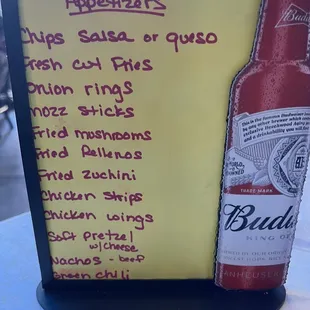 Appetizers
Chips Salsa or queso
Fresh cut Fries
Onion rings
Mozz sticks
Fried mushrooms
Fried Rellenos
Fried zuchini
Chicken strips
Chicken wings
Soft Pretzel
w/cheese
Nachos - beef
Green chili
Budweiser
This is the famous Budweiser
Budw
KING OF
ANHEUSER